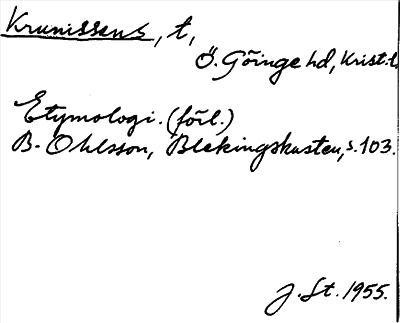 Krunissens, t,
Ö. Göinge hd, Krist. l.
Etymologi. (förl.)
B. Ohlsson, Blekingskusten, s. 103.
J. St. 1955.